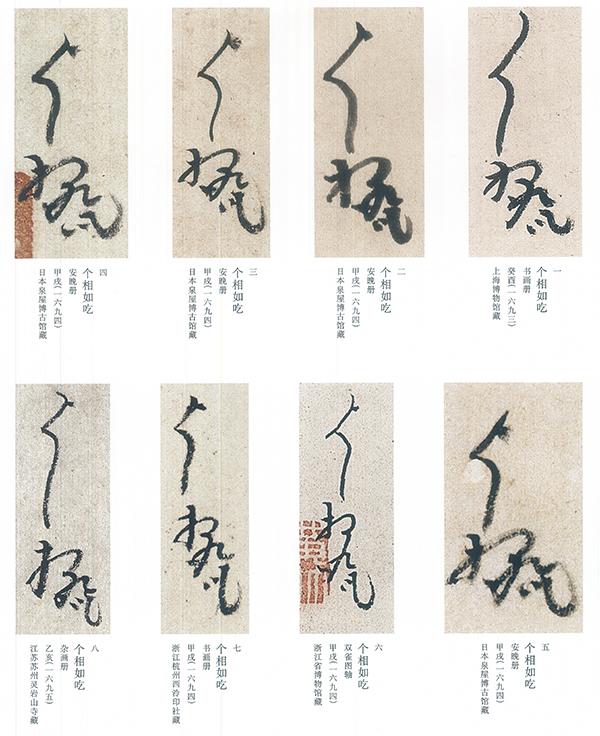 一
个相如吃
书画册
癸酉(一六九三)
上海博物馆藏
二
个相如吃
安晚册
甲戌(一六九四)
日本泉屋博古馆藏
三
个相如吃
安晚册
甲戌(一六九四)
日本泉屋博古馆藏
四
个相如吃
安晚册
甲戌(一六九四)
日本泉屋博古馆藏
五
个相如吃
安晚册
甲戌(一六九四)
日本泉屋博古馆藏
六
个相如吃
双雀图轴
甲戌(一六九四)
浙江省博物馆藏
七
个相如吃
书画册
甲戌(一六九四)
浙江杭州西泠印社藏
八
个相如吃
杂画册
乙亥(一六九五)
江苏苏州灵岩山寺藏